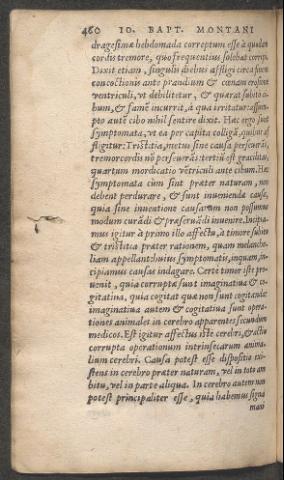 460 IO. BAPT. MONTANI
dragesima hebdomada correptum esse à quodam
cordis tremore, quo frequentius solebat corripi.
Dixit etiam, singulis diebus affligi circa finem
concoctionis ante prandium & coenam erosione
ventriculi, vt debilitetur, & quærat subito ci-
bum, & famē incurrit, à qua irritatur: assum-
pto autē cibo nihil sentire dixit. Hæc ergo sunt
symptomata, vt ea per capita colligā, quibus af-
fligitur: Tristitia, metus sine causa perseuerās,
tremor cordis nō perseuerās: tertiū est gracilitas,
quartum mordicatio vētriculi ante cibum. Hæc
symptomata cùm sint præter naturam, non
debent perdurare, & sunt inueniendæ causæ,
quia sine inuentione causarum non possumus
modum curādi & præseruādi inuenire. Incipia-
mus igitur à primo illo affectu, à timore subito
& tristitia præter rationem, quam melancho-
liam appellant huius symptomatis, inquam, in-
cipiamus causas indagare. Certe timor iste pro-
uenit, quia corruptæ sunt imaginatiua & co-
gitatiua, quia cogitat quæ non sunt cogitanda:
imaginatiua autem & cogitatiua sunt opera-
tiones animales in cerebro apparentes secundum
medicos. Est igitur affectus iste cerebri, & actu
corrupta operationum intrinsecarum anima-
lium cerebri. Causa potest esse dispositio exi-
stens in cerebro præter naturam, vel in toto am
bitu, vel in parte aliqua. In cerebro autem non
potest principaliter esse, quia habemus signa
man